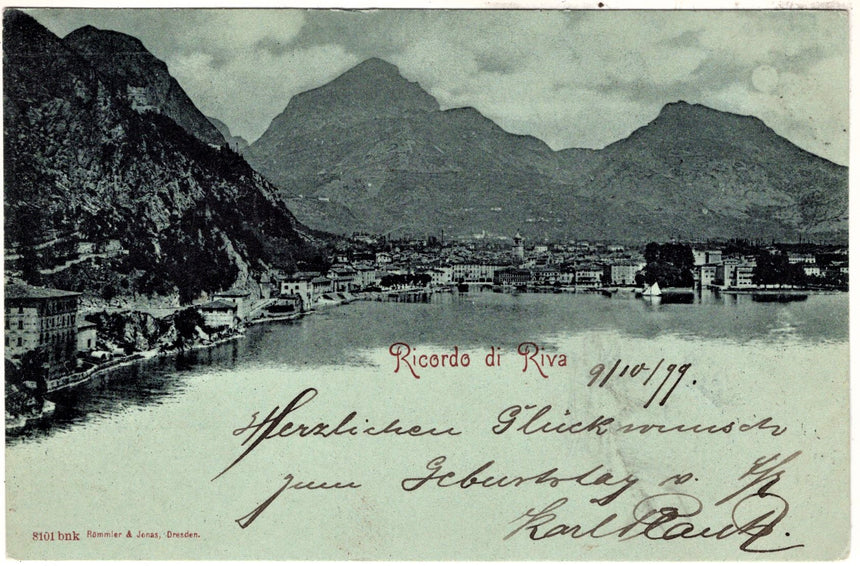 Ricordo di Riva
9/10/99.
Herzlichen Glückwunsch
zum Geburtstag v.
Karl
8101 bnk Römmler & Jonas, Dresden.